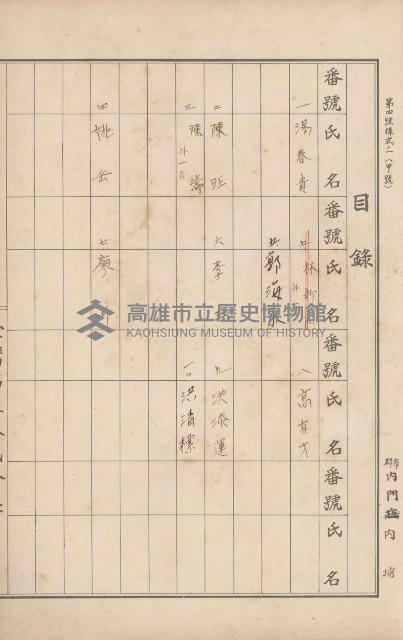 第四號樣式ノ一(甲號)
目錄
番號 氏名 番號 氏名 番號 氏名 番號 氏名
一 湯春貴
二 陳旺
三 陳濤
外一名
四 姚岳
五 林新
外
五 郭海
六 李
七 廖
八 高有才
九 洪添運
一〇 洪清標
內門 內埔
高雄市立歷史博物館
KAOHSIUNG MUSEUM OF HISTORY